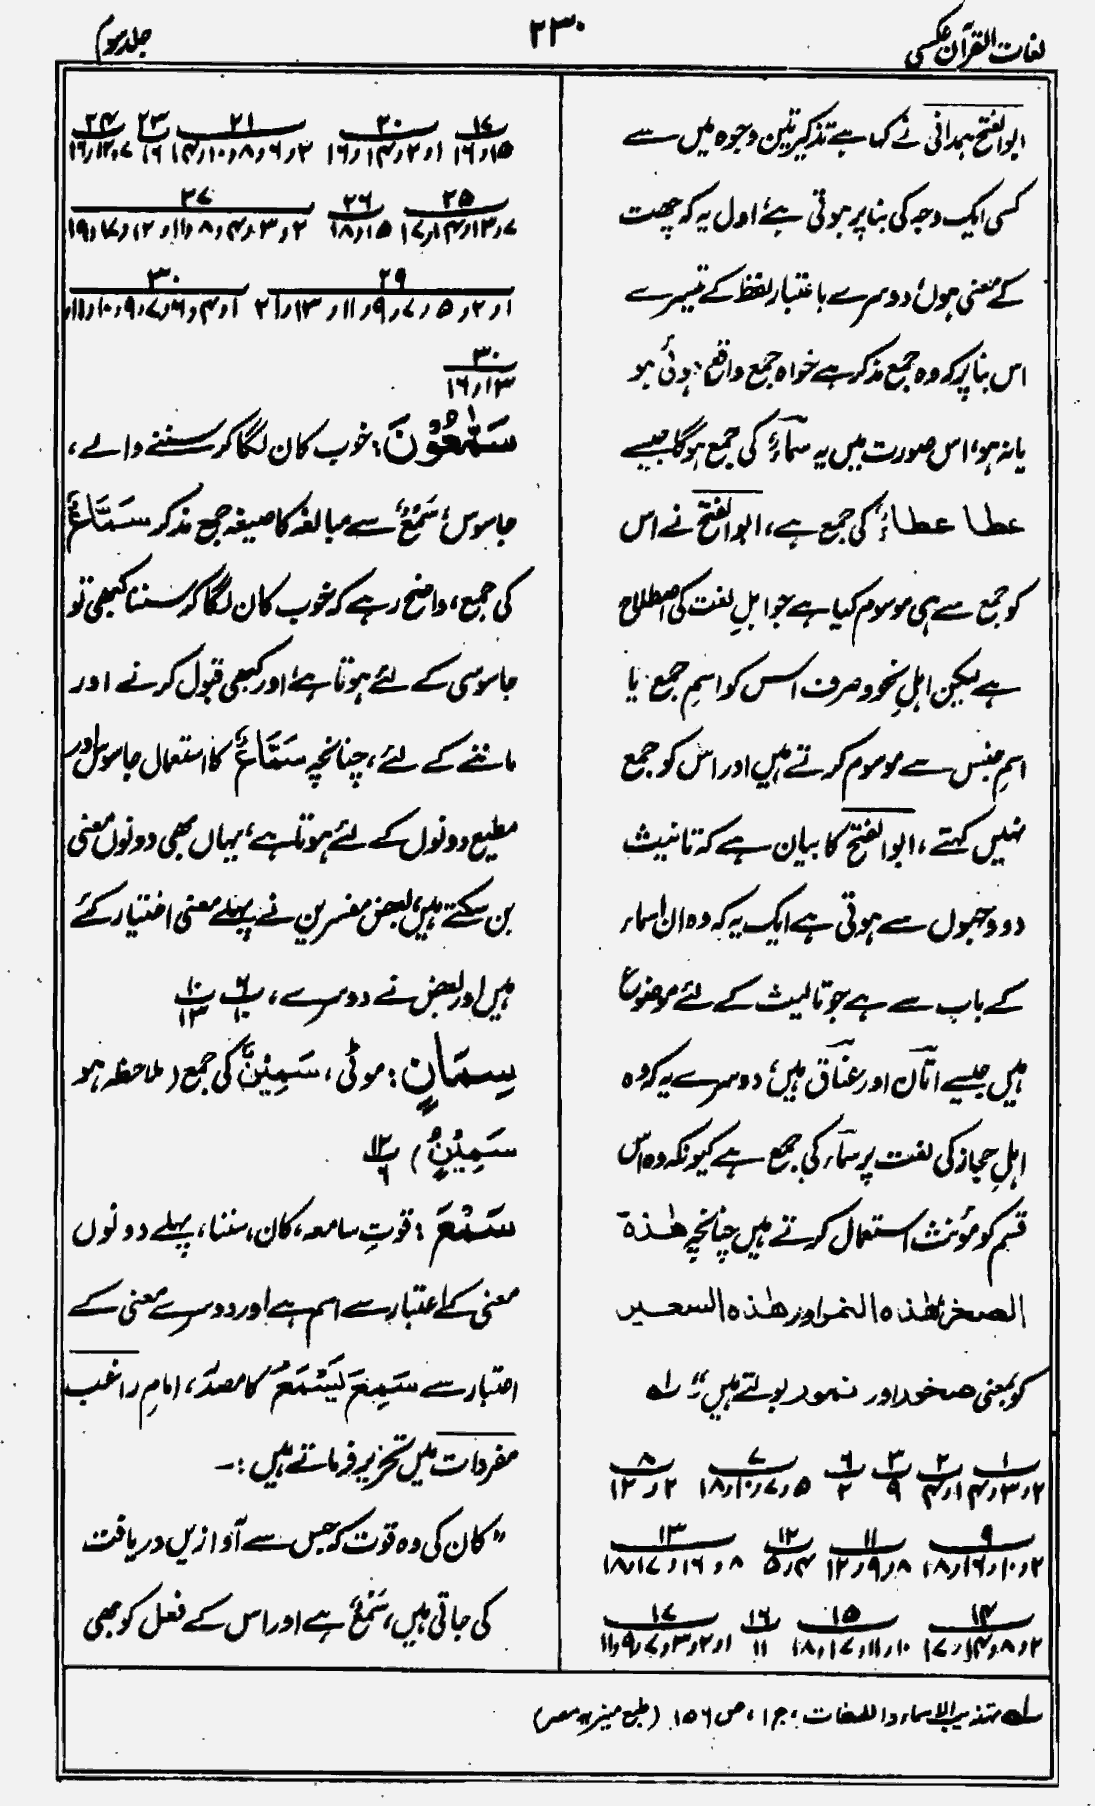 لغات القرآن عکسی
۲۳۰
جلد سوم
ابوالفتح ہمدانی نے کہا ہے تذکیر تین وجوہ میں سے
کسی ایک وجہ کی بنا پر ہوتی ہے، اول یہ کہ چھت
کے معنی ہوں، دوسرے باعتبار لفظ کے تیسرے
اس بنا پر کہ وہ جمع مذکر ہے خواہ جمع واقع ہوئی ہو
یا نہ ہو، اس صورت میں یہ سماءۃ کی جمع ہو گا جیسے
عطا عطاءۃ کی جمع ہے، ابوالفتح نے اس
کو جمع سے ہی موسوم کیا ہے جو اہلِ لغت کی اصطلاح
ہے لیکن اہلِ نحو و صرف اس کو اسمِ جمع یا
اسمِ جنس سے موسوم کرتے ہیں اور اس کو جمع
نہیں کہتے، ابوالفتح کا بیان ہے کہ تانیث
دو وجہوں سے ہوتی ہے ایک یہ کہ وہ ان اسماء
کے باب سے ہے جو تانیث کے لئے موضوع
ہیں جیسے اتان اور عناق ہیں، دوسرے یہ کہ وہ
اہلِ حجاز کی لغت پر سماء کی جمع ہے کیونکہ وہ اس
قسم کو مؤنث استعمال کرتے ہیں چنانچہ ھٰذہ
الصخر، ھٰذہ النمر اور ھٰذہ السعیر
کو بمعنی صخور اور نمور بولتے ہیں" لہ
۱ ۲ ۳ ۶ ۷ ۸
۲و۳و۴ ۱و۴ ۹ ۲ ۵و۷و۱۰و۱۸ ۲و۱۲
۹ ۱۱ ۱۲ ۱۳
۲و۱۰و۱۶و۱۸ ۸و۹و۱۲ ۴و۵ ۸و۱۶و۱۷و۱۸
۱۴ ۱۵ ۱۶ ۱۷
۲و۸و۱۴و۱۷ ۱۰و۱۱و۱۷و۱۸ ۱۱ ۱و۲و۳و۷و۹و۱۱
۱۷ ۲۰ ۲۱ ۲۳ ۲۴
۱۵و۱۶ ۱و۲و۱۴و۱۶ ۲و۶و۸و۱۰و۱۴ ۱۶ ۷و۱۲و۱۶
۲۵ ۲۶ ۲۷
۷و۱۳و۱۴و۱۷ ۱۵و۱۸ ۲و۳و۴و۸و۱۱و۱۲و۱۷و۱۹
۲۹ ۳۰
۱و۲و۵و۷و۹و۱۱و۱۳و۲۱ ۱و۴و۶و۷و۹و۱۰و۱۱و
۳۰
۱۳و۱۶
سَمّٰعُوْنَ: خوب کان لگا کر سننے والے،
جاسوس، سَمْعٌ سے مبالغہ کا صیغہ جمع مذکر سَمَّاعٌ
کی جمع، واضح رہے کہ خوب کان لگا کر سننا کبھی تو
جاسوسی کے لئے ہوتا ہے، اور کبھی قبول کرنے اور
ماننے کے لئے، چنانچہ سَمَّاعٌ کا استعمال جاسوس اور
مطیع دونوں کے لئے ہوتا ہے، یہاں بھی دونوں معنی
بن سکتے ہیں، بعض مفسرین نے پہلے معنی اختیار کئے
ہیں اور بعض نے دوسرے، پ۶ ۱۰ پ۱۰ ۱۳
سِمَانٍ: موٹی، سَمِیْنٌ کی جمع (ملاحظہ ہو
سَمِیْنٌ) پ۱۲ ۶
سَمْعَ: قوتِ سامعہ، کان، سننا، پہلے دونوں
معنی کے اعتبار سے اسم ہے اور دوسرے معنی کے
اعتبار سے سَمِعَ یَسْمَعُ کا مصدر، امامِ راغب
مفردات میں تحریر فرماتے ہیں:۔
"کان کی وہ قوت کہ جس سے آوازیں دریافت
کی جاتی ہیں، سَمْعٌ ہے اور اس کے فعل کو بھی
لہ تہذیب الاسماء واللغات، ج ۱، ص ۱۵۶ (طبع منیریہ مصر)